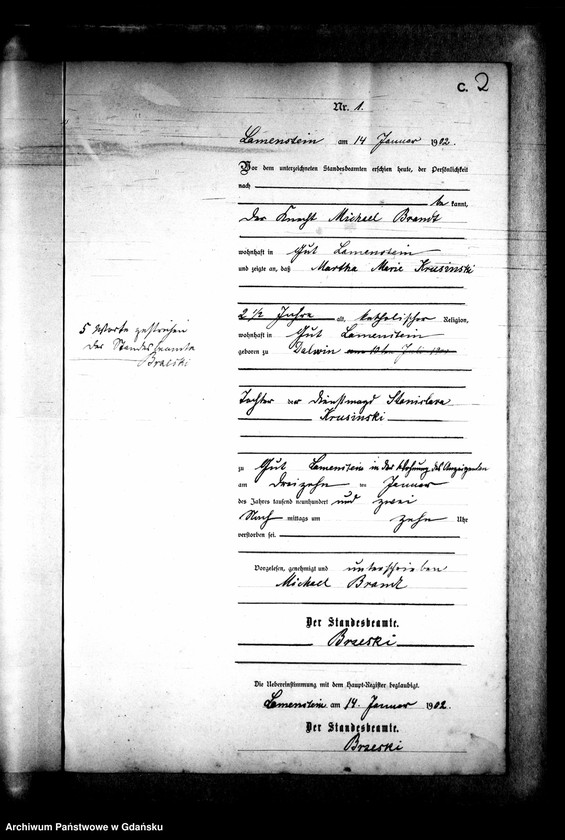 C. 2
Nr. 1.
Lamenstein am 14 Januar 1902.
Vor dem unterzeichneten Standesbeamten erschien heute, der Persönlichkeit
nach
be kannt,
der Knecht Michael Brandt
wohnhaft in Gut Lamenstein
und zeigte an, daß Martha Marie Krusinski
2 1/2 Jahre alt, katholischer Religion,
wohnhaft in Gut Lamenstein
geboren zu Dalwin am 13ten Juli
5 Worte gestrichen
Der Standesbeamte
Braeski
Tochter der Dienstmagd Stanislava
Krusinski
zu Gut Lamenstein in der Wohnung des Anzeigenden
am dreizehn ten Januar
des Jahres tausend neunhundert und zwei
Nach mittags um zehn Uhr
verstorben sei.
Vorgelesen, genehmigt und unterschrieben
Michael Brandt
Der Standesbeamte.
Braeski
Die Uebereinstimmung mit dem Haupt-Register beglaubigt.
Lamenstein am 14. Januar 1902.
Der Standesbeamte.
Braeski
Archiwum Państwowe w Gdańsku